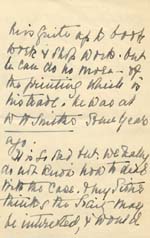 He is quite up to book
work & ship work. but
he can do no more of
the printing which is
his trade. he was at
W H Smiths some years
ago.
It is so sad but we really
do not know how to deal
with the case. I my Sister
thinking the Ivory may
be interested, & would